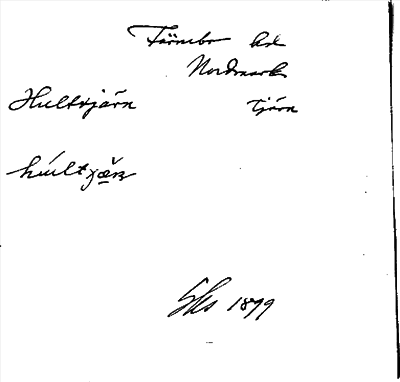 Färnebo hd
Nordmark
Hultsjärn tjärn
hultjæ̌rn
Sks 1899